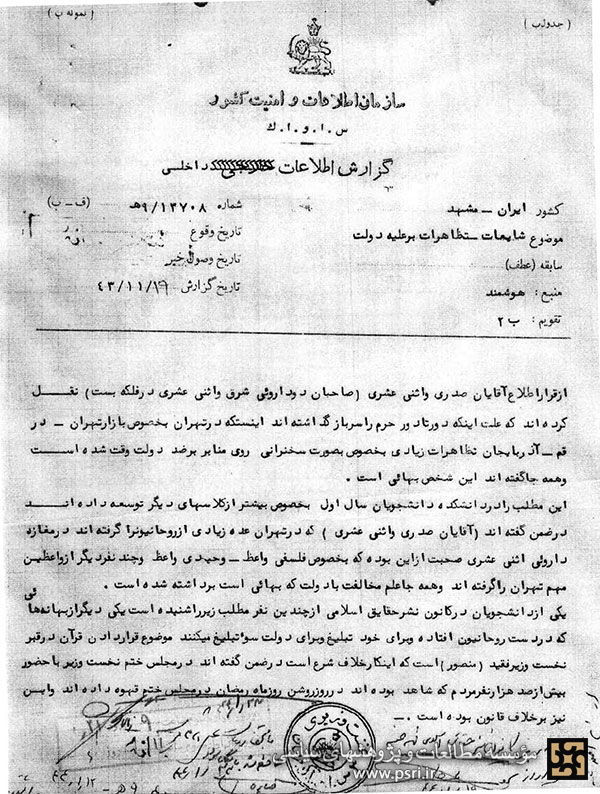 ( جدول ب )
( نمونه ب )
سازمان اطلاعات و امنیت کشور
س . ا . و . ا . ک
گزارش اطلاعات داخلی
کشور ایران - مشهد
شماره ۹/۱۳۷۰۸ هـ (ف - ب)
موضوع شایعات - تظاهرات بر علیه دولت
تاریخ وقوع
سابقه (عطف)
تاریخ وصول خبر
منبع : هوشمند
تاریخ گزارش ۴۳/۱۱/۱۹
تقویم : ب ۲
از قرار اطلاع آقایان صدری واثنی عشری (صاحبان دو داروئی شرق واثنی عشری در فلکه بست) نقل
کرده اند که علت اینکه دور تا دور حرم را سرباز گذاشته اند اینستکه در تهران بخصوص بازار تهران - در
قم - آذربایجان تظاهرات زیادی بخصوص بصورت سخنرانی روی منابر بر ضد دولت وقت شده است
وهمه جا گفته اند این شخص بهائی است .
این مطلب را در دانشکده دانشجویان سال اول بخصوص بیشتر از کلاسهای دیگر توسعه داده اند
در ضمن گفته اند (آقایان صدری واثنی عشری ) که در تهران عده زیادی از روحانیون را گرفته اند در مغازه
داروئی اثنی عشری صحبت از این بوده که بخصوص فلسفی واعظ - وحیدی واعظ وچند نفر دیگر از واعظین
مهم تهران را گرفته اند وهمه جا علم مخالفت با دولت که بهائی است برداشته شده است .
یکی از دانشجویان در کانون نشر حقایق اسلامی از چندین نفر مطلب زیر را شنیده است یکی دیگر از بهانه هائی
که در دست روحانیون افتاده وبرای خود تبلیغ وبرای دولت سوء تبلیغ میکنند موضوع قرار دادن قرآن در قبر
نخست وزیر فقید (منصور) است که اینکار خلاف شرع است در ضمن گفته اند در مجلس ختم نخست وزیر با حضور
بیش از صد هزار نفر مردم که شاهد بوده اند در روز روشن روز ماه رمضان در مجلس ختم قهوه داده اند واین
نیز بر خلاف قانون بوده است . -
مؤسسه مطالعات و پژوهشهای سیاسی
www.psri.ir